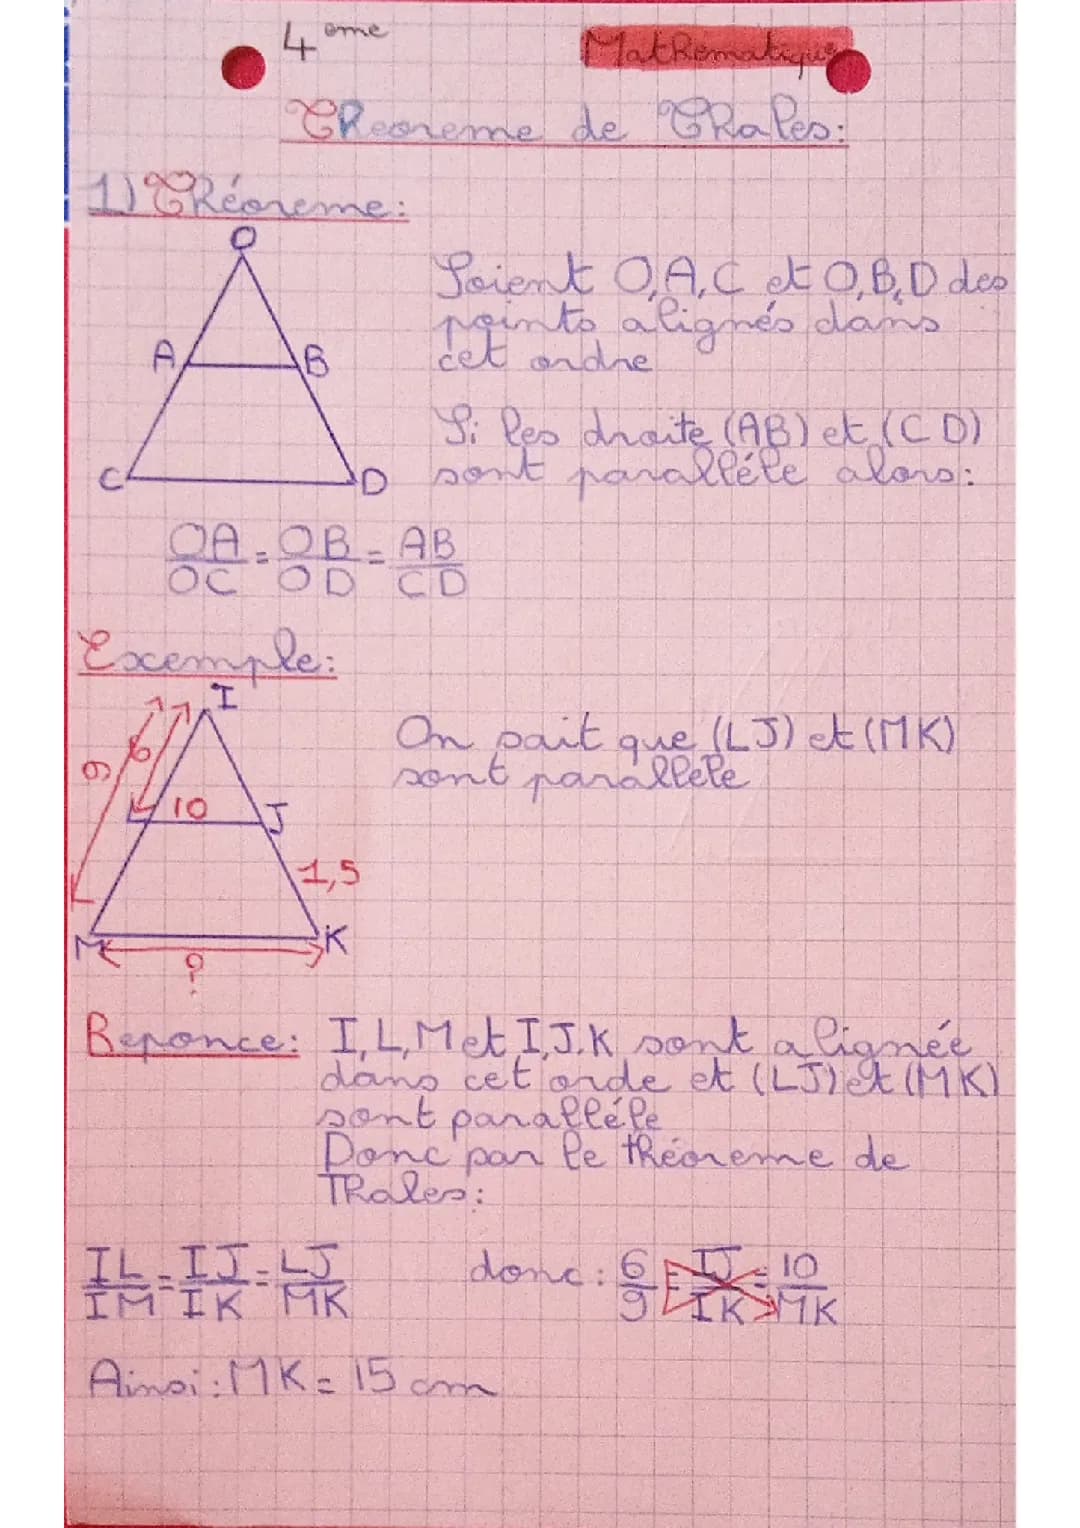 4 eme
Mathematique
Theoreme de Thales:
1) Théoreme:
O
Soient O,A,C et O,B,D des
points alignés dans
cet ordre
A B
Si les droite (AB) et (CD)
sont paralléle alors:
C D
OA = OB = AB
OC OD CD
Exemple:
I
On sait que (LJ) et (MK)
sont parallele
9 6
10 J
L
1,5
M K
?
Reponce: I,L,M et I,J.K sont alignée
dans cet orde et (LJ) et (MK)
sont paralléle
Donc par le théoreme de
Thales:
IL = IJ = LJ donc : 6 = IJ = 10
IM IK MK 9 IK MK
Ainsi : MK = 15 cm